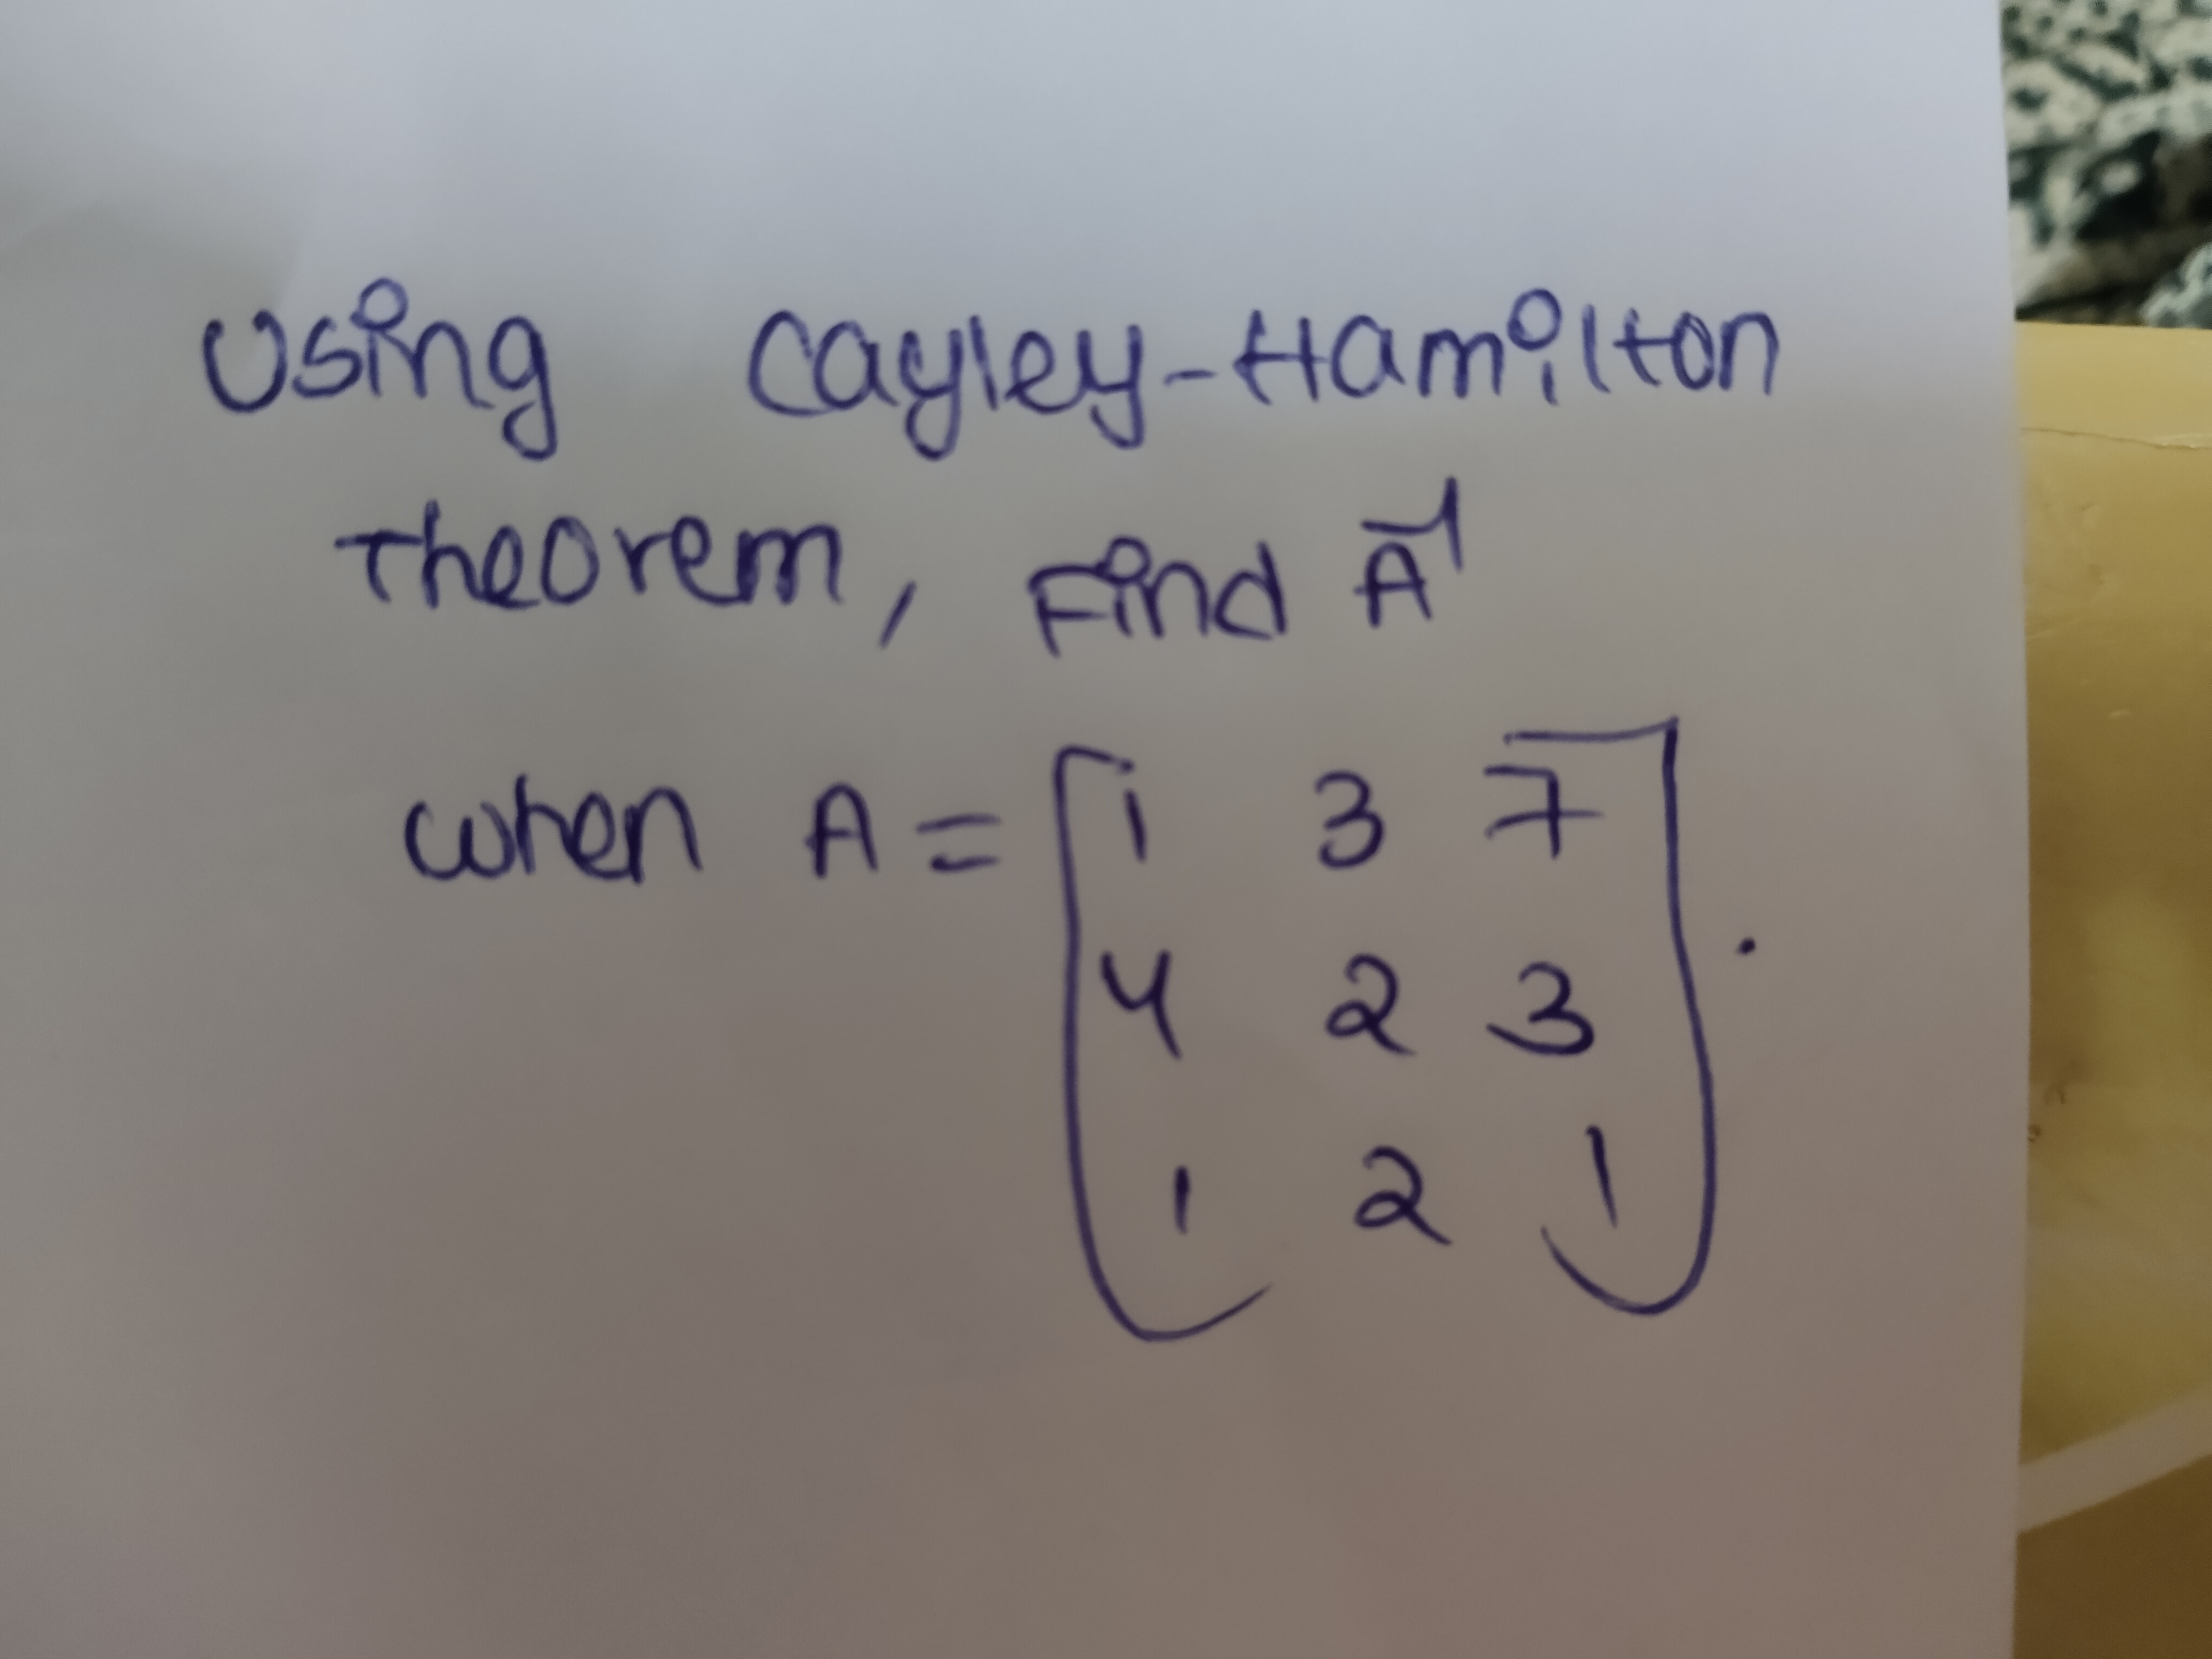 Using Cayley-Hamilton
Theorem, Find A⁻¹
when A = [1 3 7
4 2 3
1 2 1].